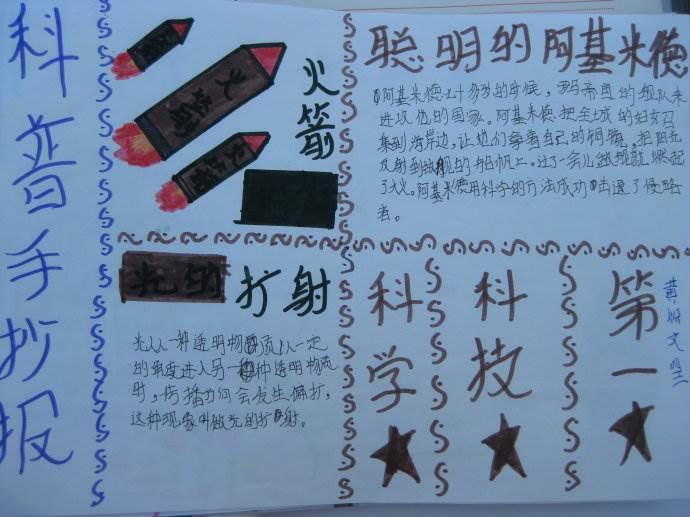 科普手抄报
火箭
火箭
火箭
聪明的阿基米德
阿基米德七十多岁的时候，罗马帝国的舰队来
进攻他的国家。阿基米德把全城的妇女召
集到海岸边，让她们拿着自己的铜镜，把阳光
反射到敌舰的船帆上。过了一会儿敌舰就燃起
了大火。阿基米德用科学的方法成功击退了侵略
者。
光的折射
光从一种透明物质以一定
的角度进入另一种透明物质
时，传播方向会发生偏折，
这种现象叫做光的折射。
科学
科技
第一